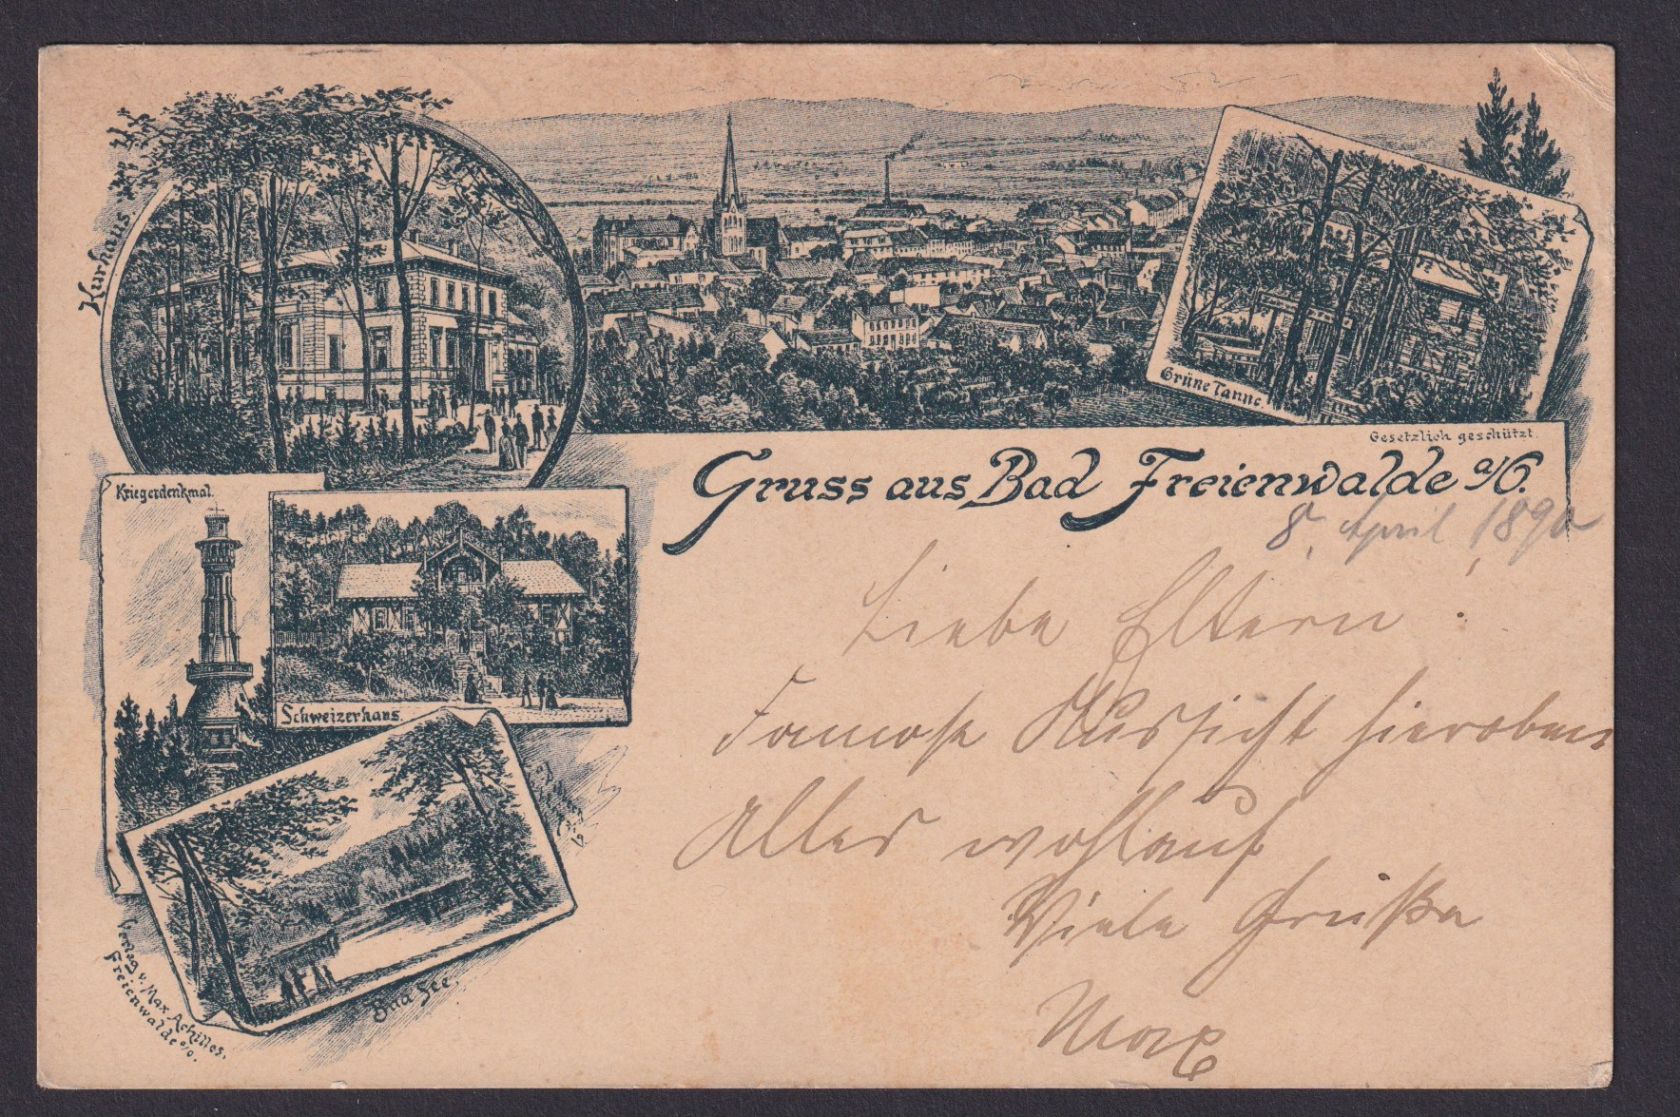 Kurhaus.
Grüne Tanne.
Gesetzlich geschützt.
Gruss aus Bad Freienwalde a/O.
8. April 189
Kriegerdenkmal.
Schweizerhaus.
Liebe Eltern!
Famose Aussicht hieroben
Alles wohlauf
Viele Grüße
Max
See.
Verlag v. Max Achilles,
Freienwalde a/O.